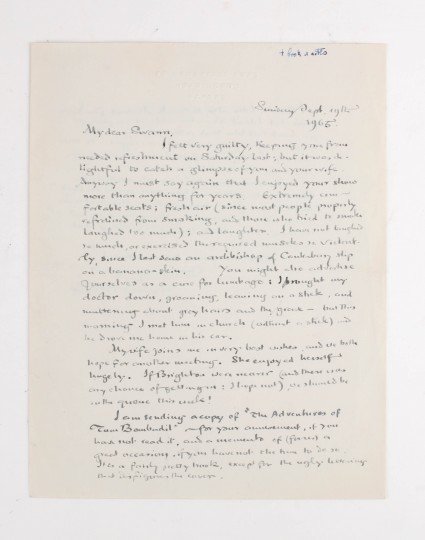 Sunday Sept 19th
1965.
My dear Swann,
I felt very guilty, keeping you from
needed refreshment on Saturday last; but it was de-
lightful to catch a glimpse of you and your wife.
Anyway I must say again that I enjoyed your show
more than anything for years. Extremely com-
fortable seats; fresh air (since most people properly
refrained from smoking, and those who tried to smoke
laughed too much); and laughter. I have not laughed
so much, or exercised the required muscles so violent-
ly, since I last saw an archbishop of Canterbury slip
on a banana-skin. You might also advertise
yourselves as a cure for lumbago: I brought my
doctor down, groaning, leaning on a stick, and
muttering about grey hours and the grave – but this
morning I met him in church (without a stick) and
he drove me home in his car.
My wife joins me in very best wishes, and we both
hope for another meeting. She enjoyed herself
hugely. If Brighton were nearer (and there was
any chance of getting in: I hope not), we should be
in the queue this week!
I am sending a copy of "The Adventures of
Tom Bombadil" – for your amusement, if you
have not read it, and a memento of (for us) a
great occasion, if you have not the time to do so.
It is a fairly pretty book, except for the ugly lettering
that disfigures the cover.